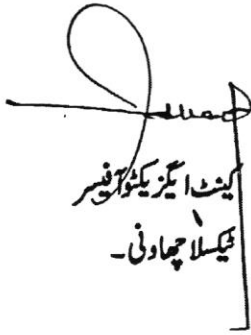 کینٹ ایگزیکٹو آفیسر
ٹیکسلا چھاونی۔